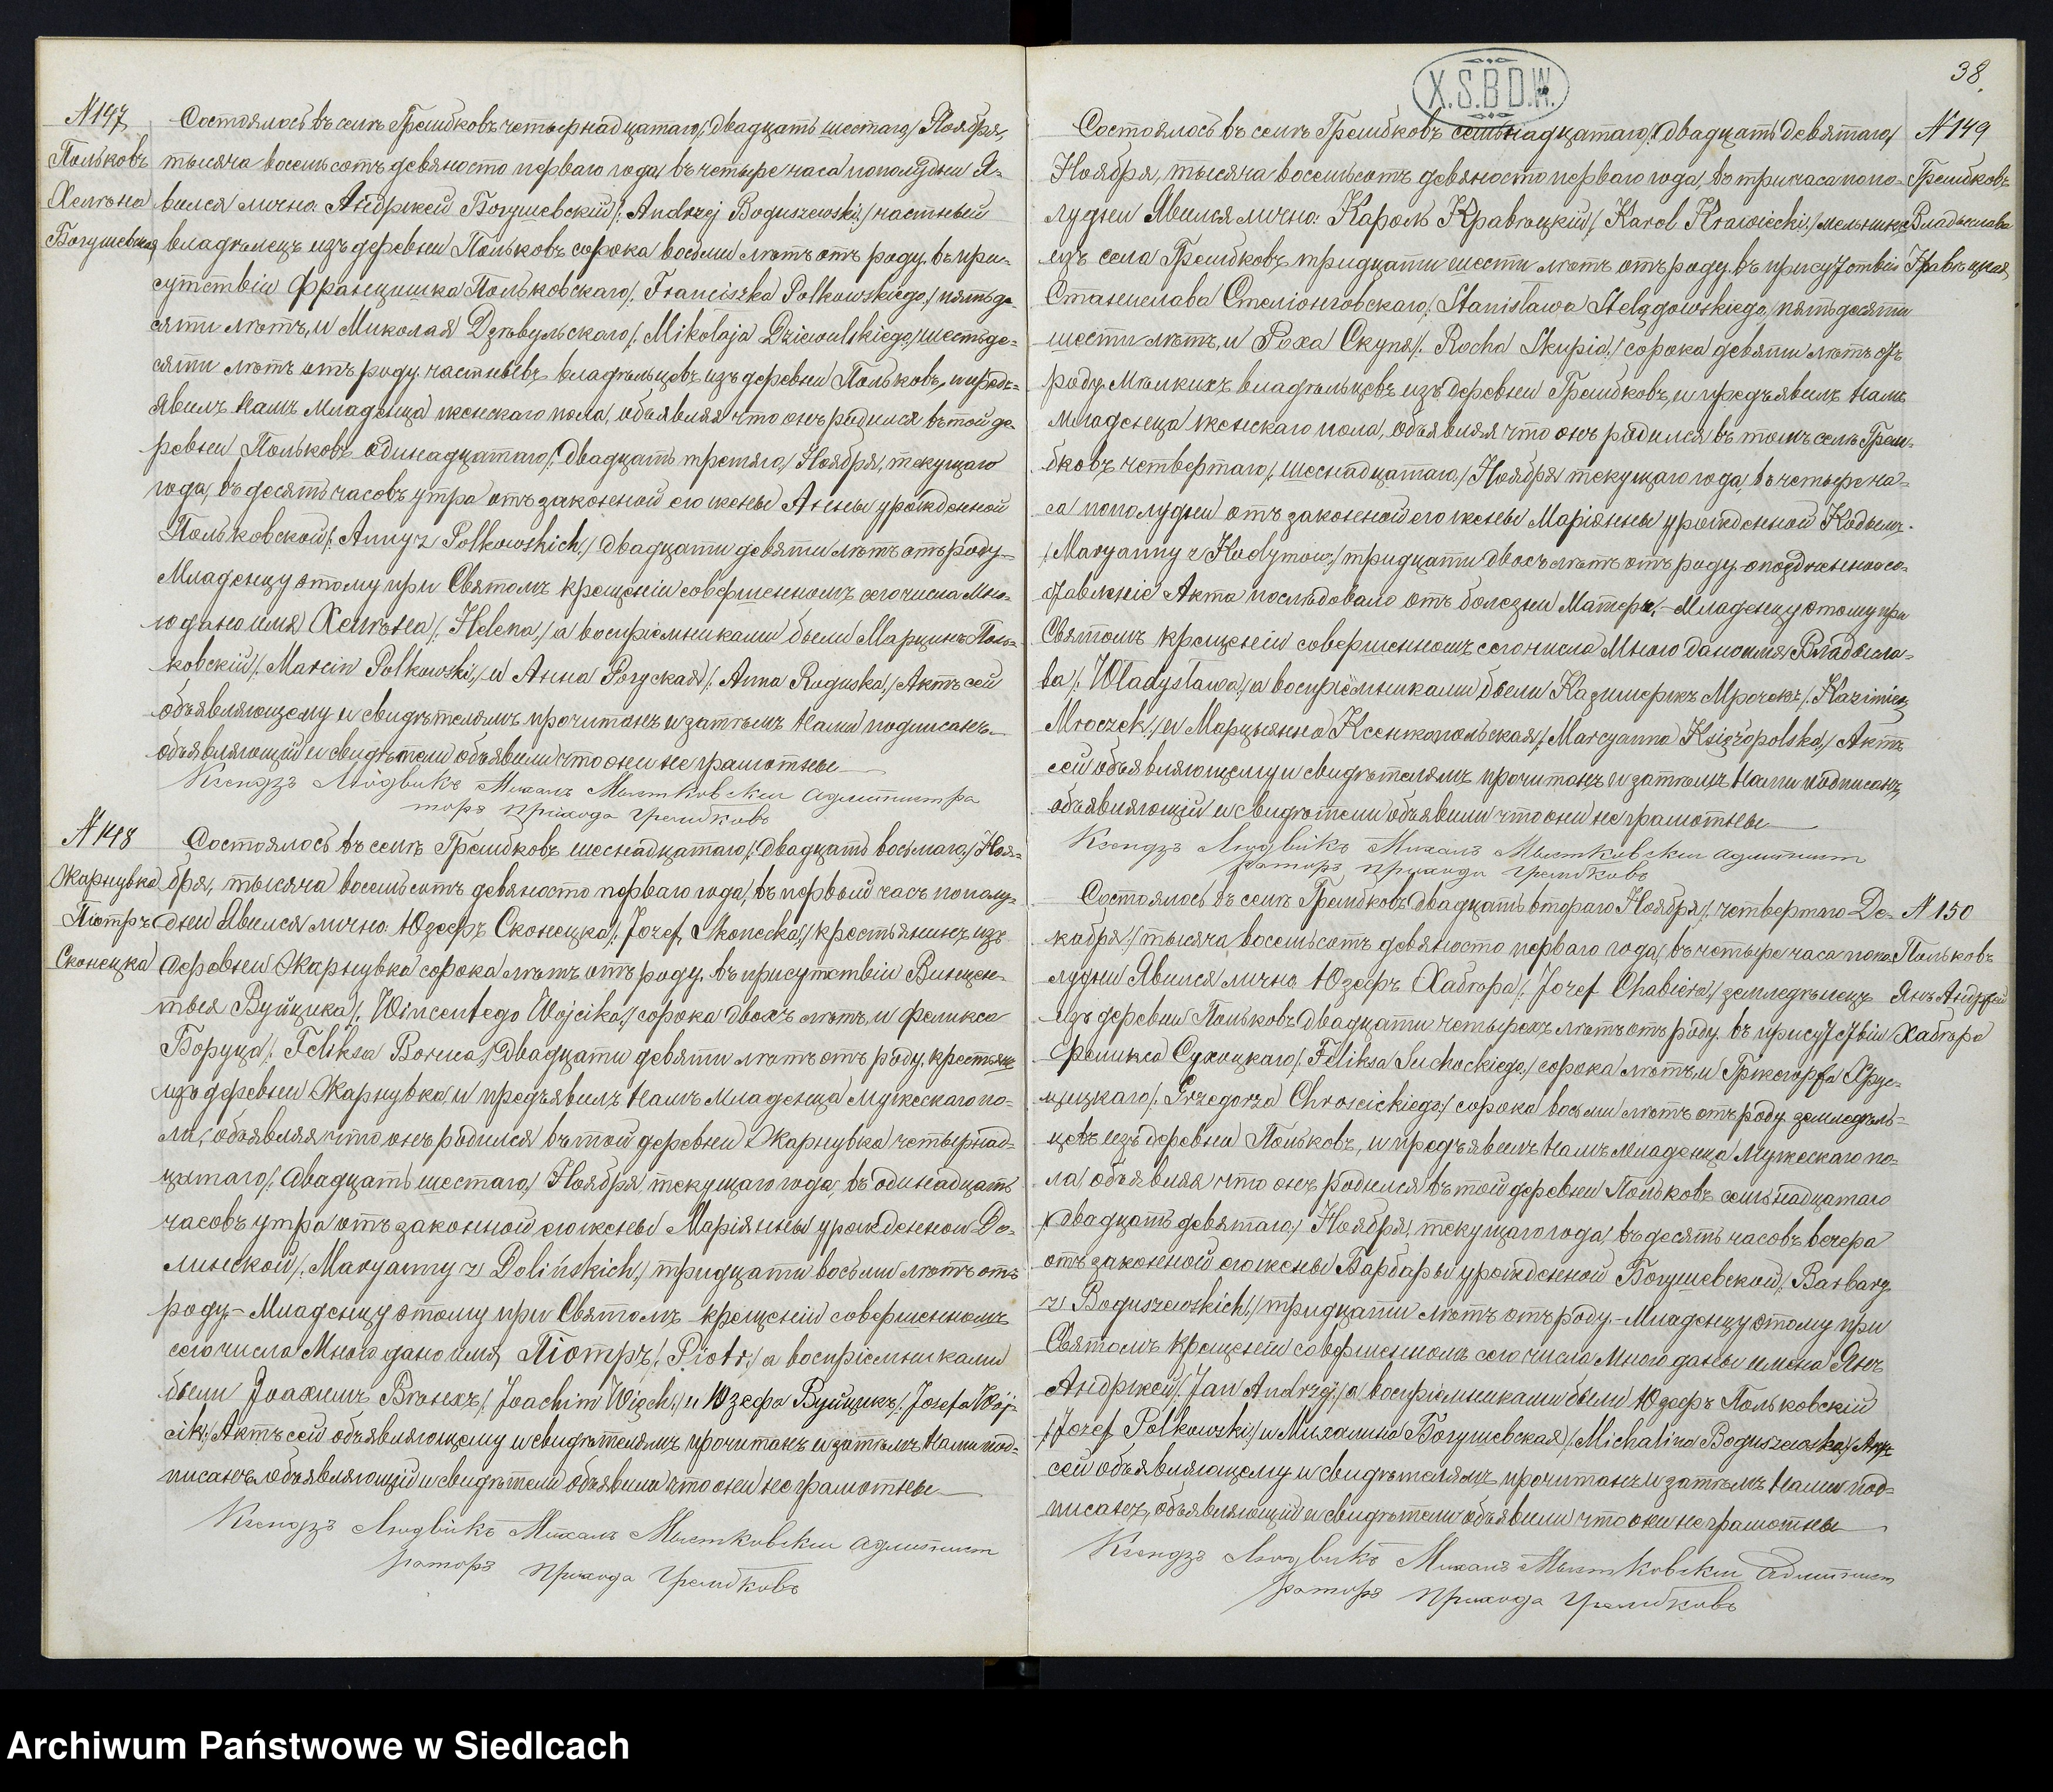 N 147
Польковъ
Хелѣна
Богушевская
Состоялось въ селѣ Грембковъ четырнадцатаго /: двадцать шестаго :/ Ноября,
тысяча восемьсотъ девяносто перваго года, въ четыре часа пополудни Я-
вился лично: Андржей Богушевскій /: Andrzej Boguszewski :/ частный
владѣлецъ изъ деревни Польковъ сорока восьми лѣтъ отъ роду, въ при-
сутствіи Францишка Польковскаго /: Franciszka Polkowskiego :/ пятьде-
сяти лѣтъ, и Миколая Дзѣвульскаго /: Mikołaja Dziewulskiego :/ шестьде-
сяти лѣтъ отъ роду, частныхъ владѣльцовъ изъ деревни Польковъ, и предъ-
явилъ Намъ младенца женскаго пола, объявляя что онъ родился въ той де-
ревни Польковъ одинадцатаго /: двадцать третяго :/ Ноября, текущаго
года, въ десять часовъ утра отъ законной его жены Анны урожденной
Польковской /: Anny z Polkowskich :/ двадцати девяти лѣтъ отъ роду
Младенцу этому при Святомъ крещеніи совершенномъ сего числа Мно-
ю дано имя Хелѣна /: Helena :/ а воспріемниками были Марцинъ Поль-
ковскій /: Marcin Polkowski :/ и Анна Рогуская /: Anna Roguska :/ Актъ сей
объявляющему и свидѣтелямъ прочитанъ и затѣмъ Нами подписанъ
объявляющій и свидѣтели объявили что они неграмотны
Ксендзъ Людвикъ Михалъ Мыстковскій Администра
торъ прихода Грембковъ
N 148
Жарнувка
Піотръ
Сконецка
Состоялось въ селѣ Грембковъ шеснадцатаго /: двадцать восьмаго :/ Ноя-
бря, тысяча восемьсотъ девяносто перваго года, въ первый часъ пополу-
дни Явился лично: Юзефъ Сконецка /: Jozef Skonecka :/ крестьянинъ изъ
деревни Жарнувка сорока лѣтъ отъ роду, въ присутствіи Винцен-
тыя Вуйцика /: Wincentego Wojcika :/ сорока двохъ лѣтъ, и Феликса
Боруца /: Feliksa Boruca :/ двадцати девяти лѣтъ отъ роду, крестьянъ
изъ деревни Жарнувка, и предъявилъ Намъ младенца мужескаго по-
ла, объявляя что онъ родился въ той деревни Жарнувка четырнад-
цатаго /: двадцать шестаго :/ Ноября, текущаго года, въ одинадцать
часовъ утра отъ законной его жены Маріянны урожденной До-
линской /: Maryanny z Dolińskich :/ тридцати восьми лѣтъ отъ
роду, – Младенцу этому при Святомъ крещеніи совершенномъ
сего числа Мною дано имя Піотръ /: Piotr :/ а воспріемниками
были Іоахимъ Вѣнхъ /: Joachim Więch :/ и Юзефа Вуйцикъ /: Jozefa Wój-
cik :/ Актъ сей объявляющему и свидѣтелямъ прочитанъ и затѣмъ Нами под-
писанъ объявляющій и свидѣтели объявили что они неграмотны
Ксендзъ Людвикъ Михалъ Мыстковскій Админист
раторъ прихода Грембковъ
X.S.B.D.W.
38.
N 149
Грембковъ
Владыслава
Кравѣцкая
Состоялось въ селѣ Грембковъ семнадцатаго /: двадцать девятаго :/
Ноября, тысяча восемьсотъ девяносто перваго года, въ три часа попо-
лудни Явился лично: Кароль Кравѣцкій /: Karol Krawiecki :/ мельникъ
изъ села Грембковъ тридцати шести лѣтъ отъ роду, въ присутствіи
Станислава Стелонговскаго /: Stanisława Stelągowskiego :/ пятьдесяти
шести лѣтъ, и Роха Скупя /: Rocha Skupia :/ сорока девяти лѣтъ отъ
роду, Мѣлкихъ владѣльцевъ изъ деревни Грембковъ, и предъявилъ Намъ
младенца женскаго пола, объявляя что онъ родился въ томъ селѣ Грем-
бковъ четвертаго /: шеснадцатаго :/ Ноября текущаго года, въ четыре ча-
са пополудни отъ законной его жены Маріянны урожденной Кодымъ
/: Maryanny z Kodymow :/ тридцати двохъ лѣтъ отъ роду, опозднѣнное со-
ставленіе Акта послѣдовало отъ болезни Матери, – Младенцу этому при
Святомъ крещеніи совершенномъ сего числа Мною дано имя Владысла-
ва /: Władysława :/ а воспріемниками были Казимержъ Мрочекъ /: Kazimierz
Mroczek :/ и Марцыянна Ксенжопольская /: Marcyanna Księżopolska :/ Актъ
сей объявляющему и свидѣтелямъ прочитанъ и затѣмъ Нами подписанъ,
объявляющій и свидѣтели объявили что они неграмотны
Ксендзъ Людвикъ Михалъ Мыстковскій Админист
раторъ прихода Грембковъ
N 150
Польковъ
Янъ Андржей
Хабѣра
Состоялось въ селѣ Грембковъ двадцать втораго Ноября /: четвертаго Де-
кабря :/ тысяча восемьсотъ девяносто перваго года, въ четыре часа попо-
лудни Явился лично Юзефъ Хабѣра /: Jozef Chabiera :/ земледѣлецъ
изъ деревни Польковъ двадцати четырехъ лѣтъ отъ роду, въ присутствіи
Феликса Сухоцкаго /: Feliksa Suchockiego :/ сорока лѣтъ, и Гржегоржа Хрус-
цицкаго /: Grzegorza Chroscickiego :/ сорока восьми лѣтъ отъ роду, земледѣль-
цевъ изъ деревни Польковъ, и предъявилъ Намъ младенца мужескаго по-
ла объявляя что онъ родился въ той деревни Польковъ семьнадцатаго
/: двадцать девятаго :/ Ноября, текущаго года, въ десять часовъ вечера
отъ законной его жены Барбары урожденной Богушевской /: Barbary
z Boguszewskich :/ тридцати лѣтъ отъ роду, – Младенцу этому при
Святомъ крещеніи совершенномъ сего числа Мною даны имена Янъ
Андржей /: Jan Andrzej :/ а воспріемниками были Юзефъ Польковскій
/: Jozef Polkowski :/ и Михалина Богушевская /: Michalina Boguszewska :/ Актъ
сей объявляющему и свидѣтелямъ прочитанъ и затѣмъ Нами под-
писанъ, объявляющій и свидѣтели объявили что они неграмотны
Ксендзъ Людвикъ Михалъ Мыстковскій Админист
раторъ прихода Грембковъ
Archiwum Państwowe w Siedlcach